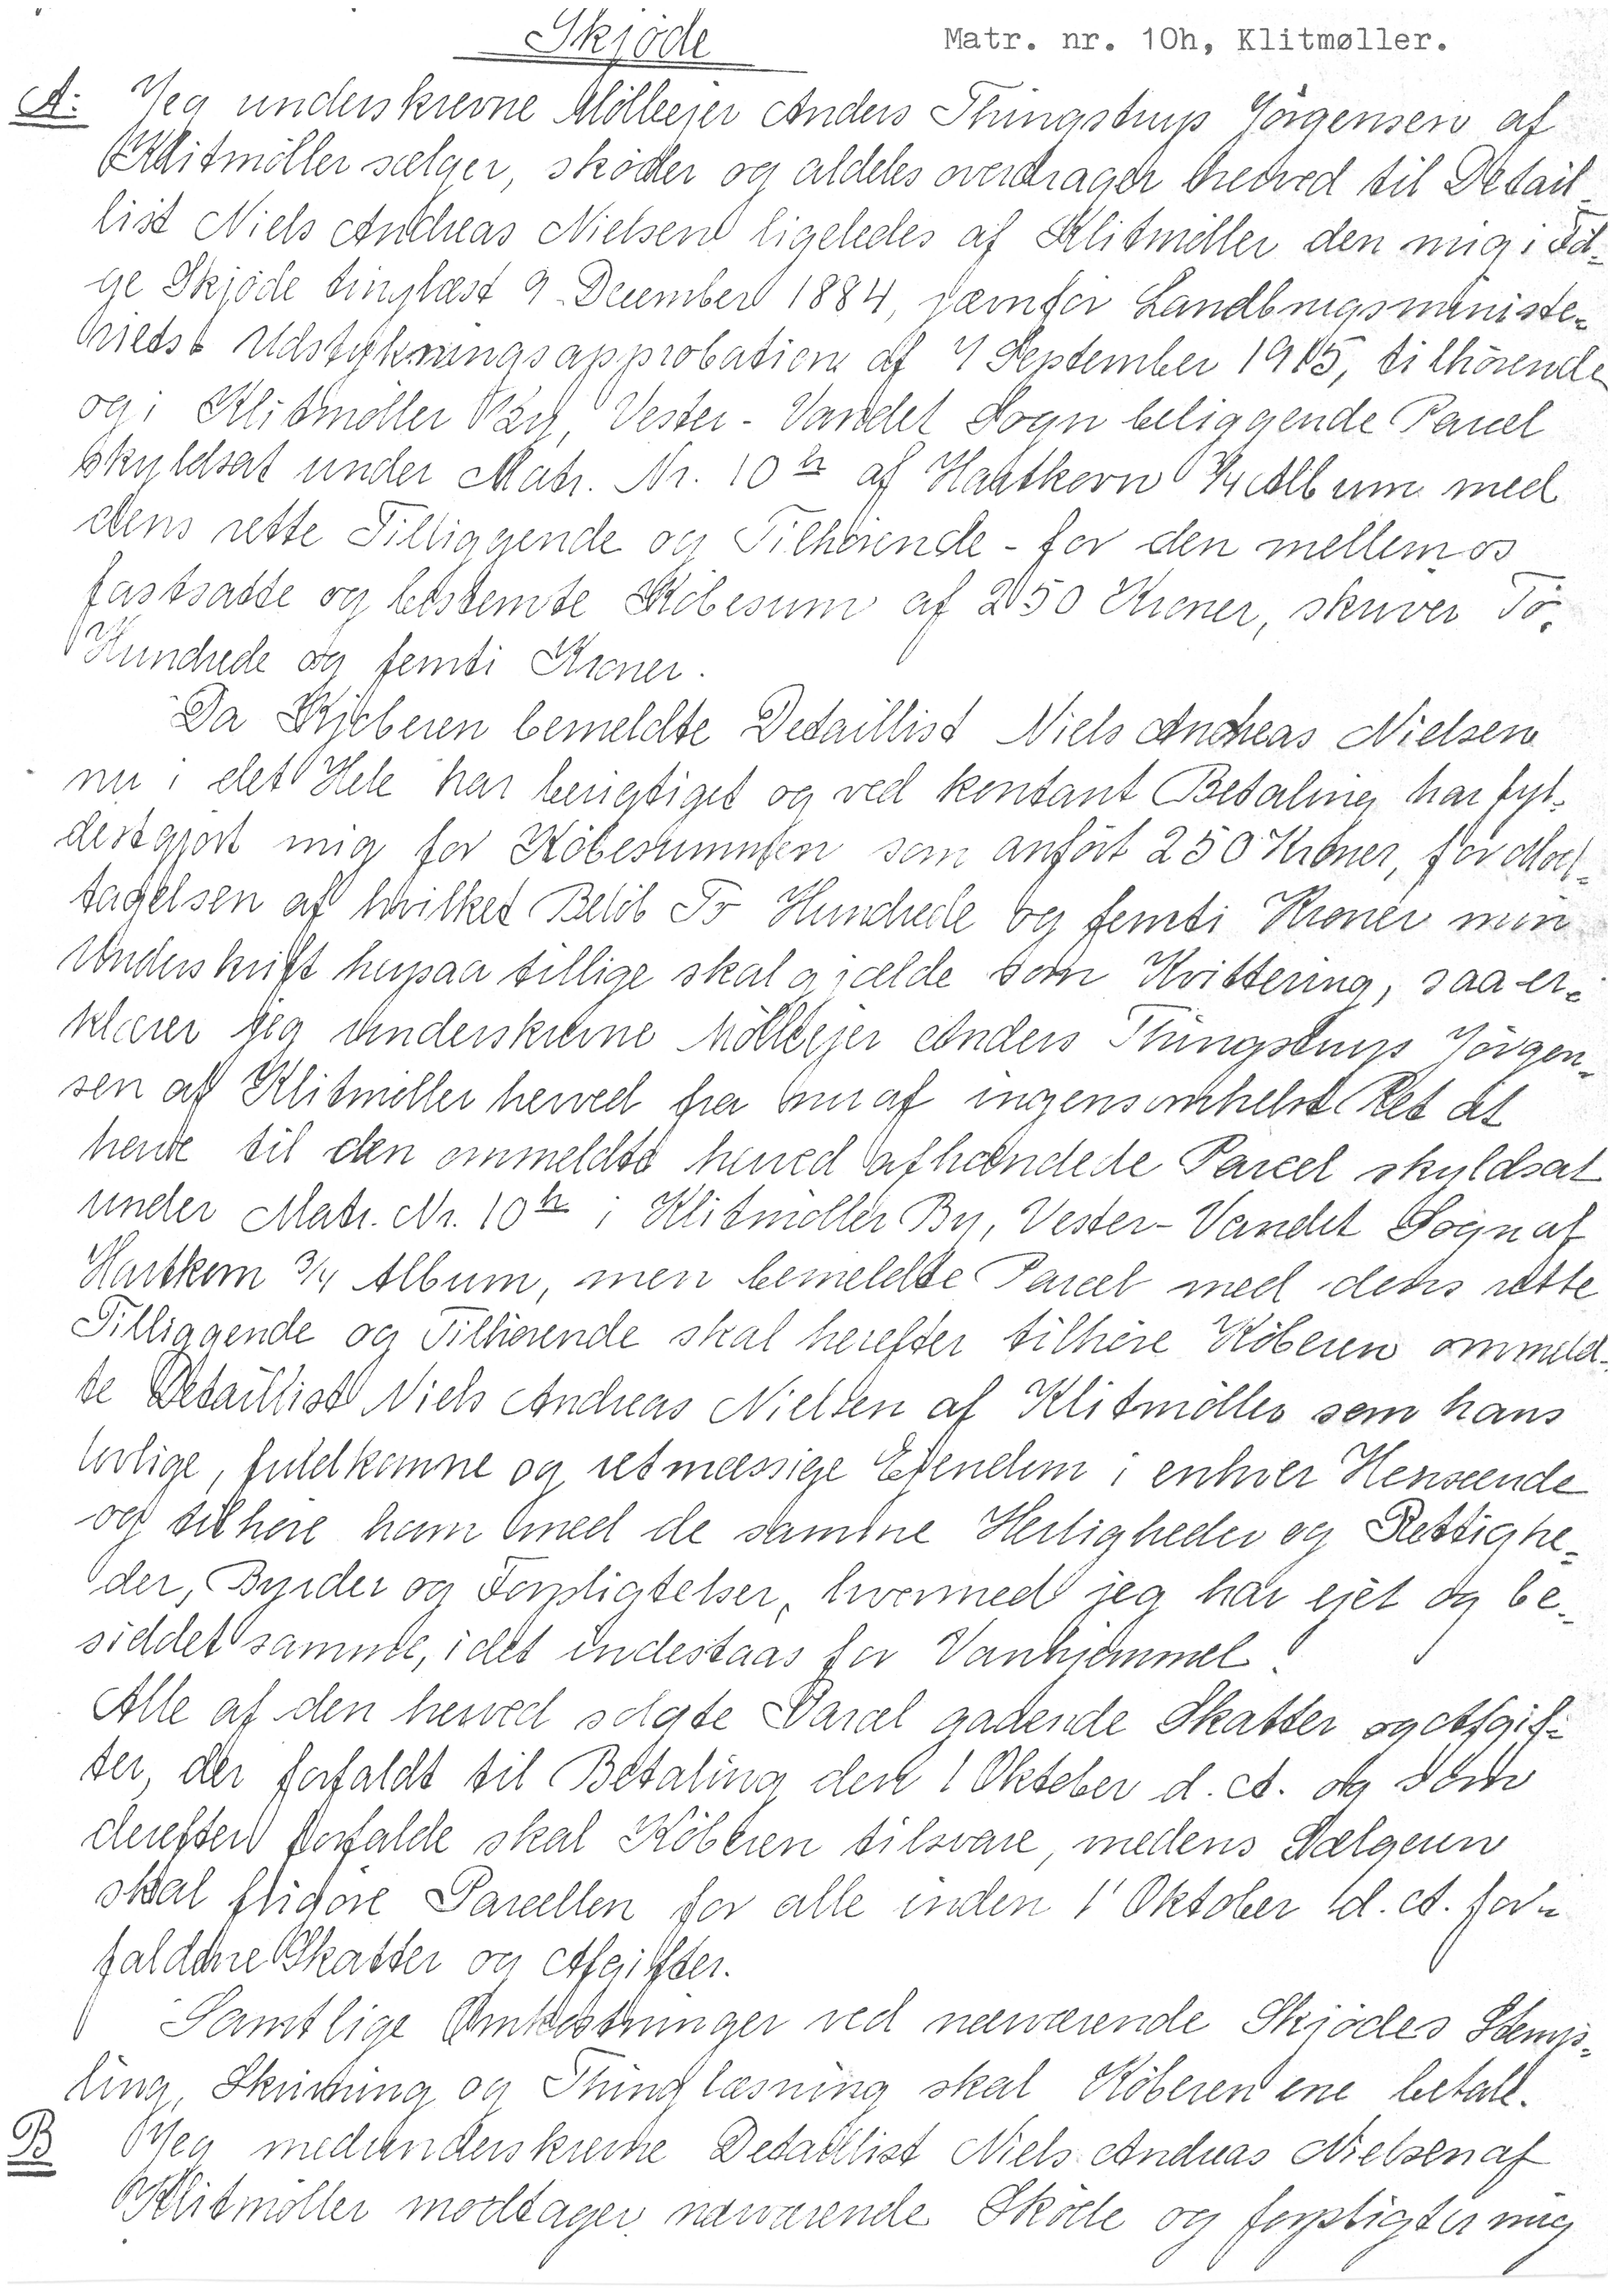 Skjøde
Matr. nr. 10h, Klitmøller.
A: Jeg underskrevne Mølleejer Anders Thingstrup Jörgensen af
Klitmöller sælger, skøder og aldeles overdrager herved til Detail-
list Niels Andreas Nielsen ligeledes af Klitmöller den mig i Föl-
ge Skjøde tinglæst 9 December 1884, jæmfør Landbrugsministe-
riets Udstykningsapprobation af 4 September 1915, tilhörende
og i Klitmøller By, Vester-Vandet Sogn beliggende Parcel
skyldsat under Matr. Nr. 10h af Hartkorn 3/4 Album med
dens rette Tilliggende og Tilhörende - for den mellem os
fastsatte og bestemte Købesum af 250 Kroner, skriver To
Hundrede og femti Kroner.
Da Kjøberen bemeldte Detaillist Niels Andreas Nielsen
nu i det Hele har berigtiget og ved kontant Betaling har fyl-
destgjort mig for Købesummen som anfört 250 Kroner, for Mod-
tagelsen af hvilket Beløb To Hundrede og femti Kroner min
Underskrift herpaa tillige skal gjælde som Kvittering, saa er-
klærer jeg underskrevne Mølleejer Anders Thingstrup Jörgen-
sen af Klitmøller herved fra nu af ingensomhelst Ret at
have til den ommeldte herved afhændede Parcel skyldsat
under Matr. Nr. 10h i Klitmøller By, Vester-Vandet Sogn af
Hartkorn 3/4 Album, men bemeldte Parcel med dens rette
Tilliggende og Tilhørende skal herefter tilhøre Køberen ommeld-
te Detaillist Niels Andreas Nielsen af Klitmøller som hans
lovlige, fuldkomne og retmæssige Ejendom i enhver Henseende
og tilhøre ham med de samme Herligheder og Rettighe-
der, Byrder og Forpligtelser, hvormed jeg har ejet og be-
siddet samme, idet indestaas for Vanhjemmel.
Alle af den herved solgte Parcel gaaende Skatter og Afgif-
ter, der forfaldt til Betaling den 1 Oktober d. A. og som
derefter forfalde skal Köberen tilsvare, medens Sælgeren
skal frigöre Parcellen for alle inden 1 Oktober d. A. for-
faldne Skatter og Afgifter.
Samtlige Omkostninger ved nærværende Skjødes Stemp-
ling, Skrivning og Thinglæsning skal Köberen ene betale.
B Jeg medunderskrevne Detaillist Niels Andreas Nielsen af
Klitmøller modtager nærværende Skøde og forpligter mig